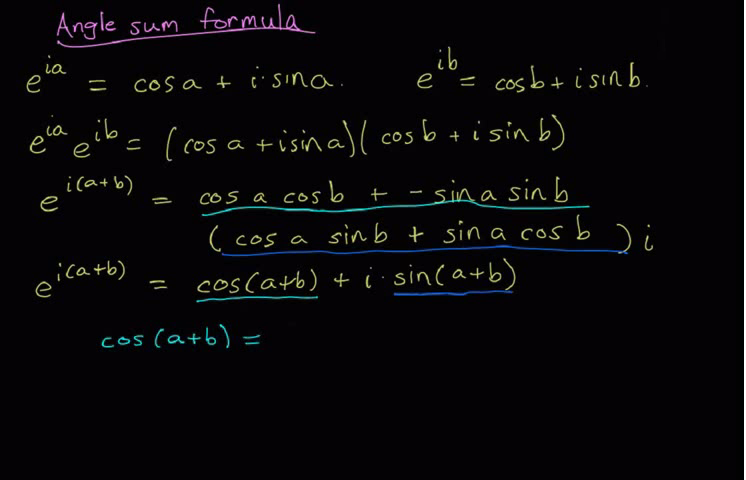 Angle sum formula
e^{ia} = cos a + i · sin a. e^{ib} = cos b + i sin b.
e^{ia} e^{ib} = (cos a + i sin a)(cos b + i sin b)
e^{i(a+b)} = cos a cos b + - sin a sin b
(cos a sin b + sin a cos b) i
e^{i(a+b)} = cos(a+b) + i · sin(a+b)
cos(a+b) =